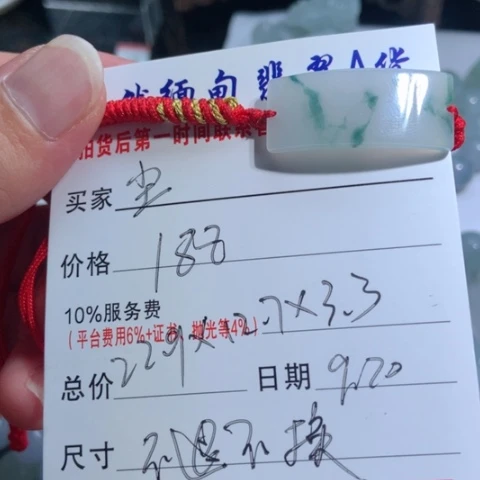 缅甸翡翠A货
拍货后第一时间联系客
买家
价格 188
10%服务费
(平台费用6%+证书、抛光等4%)
22.9×12.7×3.3
总价 日期 9.20
尺寸 不退不换